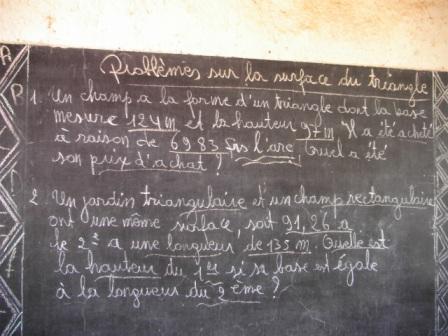 Problèmes sur la surface du triangle
1. Un champ a la forme d'un triangle dont la base
mesure 124m et la hauteur 97m Il a été acheté
à raison de 6983 frs l'are. Quel a été
son prix d'achat ?
2. Un jardin triangulaire et un champ rectangulaire
ont une même surface, soit 91,26 a
le 2e a une longueur de 135m. Quelle est
la hauteur du 1er si sa base est égale
à la longueur du 2ème ?